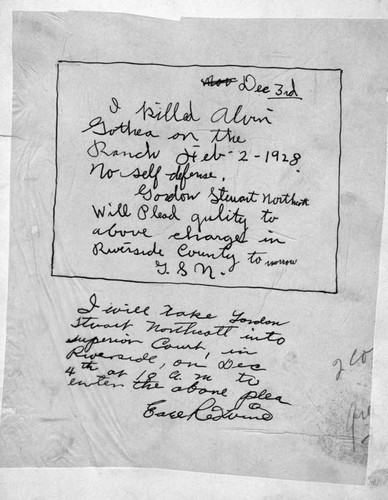 Nov Dec 3rd
I killed Alvin
Gothea on the
Ranch Feb-2-1928
No self defense.
Gordon Stewart Northcott
Will Plead guility to
above charges in
Riverside County to morrow
G. S. N.
I will take Gordon
Stuart Northcott into
superior Court, in
Riverside, on Dec
4th at 10 a.m to
enter the above plea